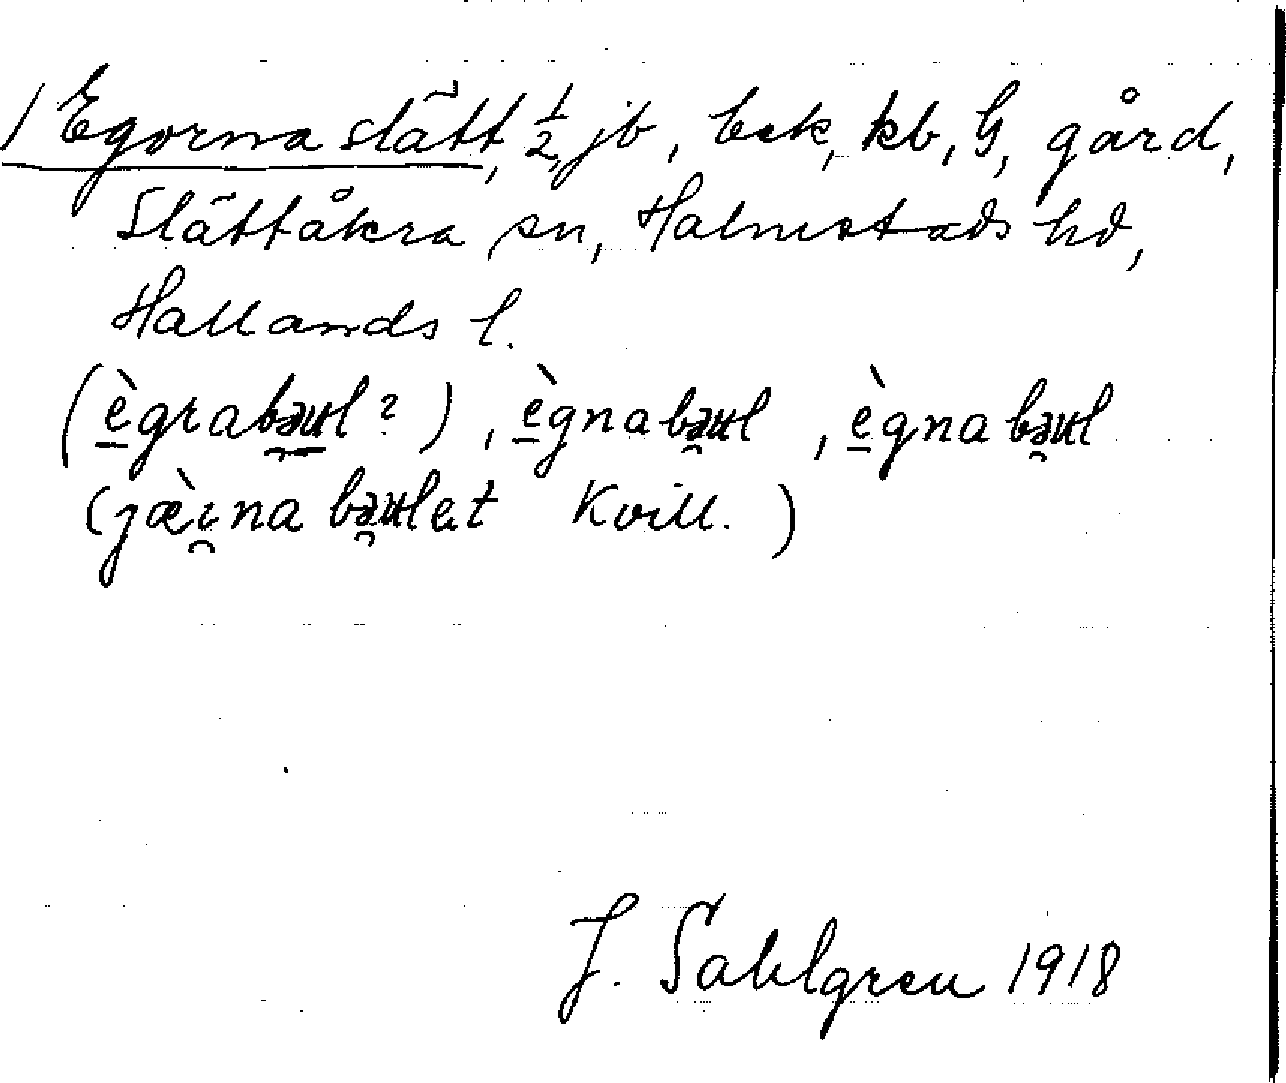 / Egorna slätt, 1/2, jb, bek, kb, G, gård,
Slättåkra sn, Halmstads hd,
Hallands l.
(ègrabəu̯l?), ègnabəu̯l, ègnabəu̯l
(jæ̀i̯na bəu̯let Kvill.)
J. Sahlgren 1918